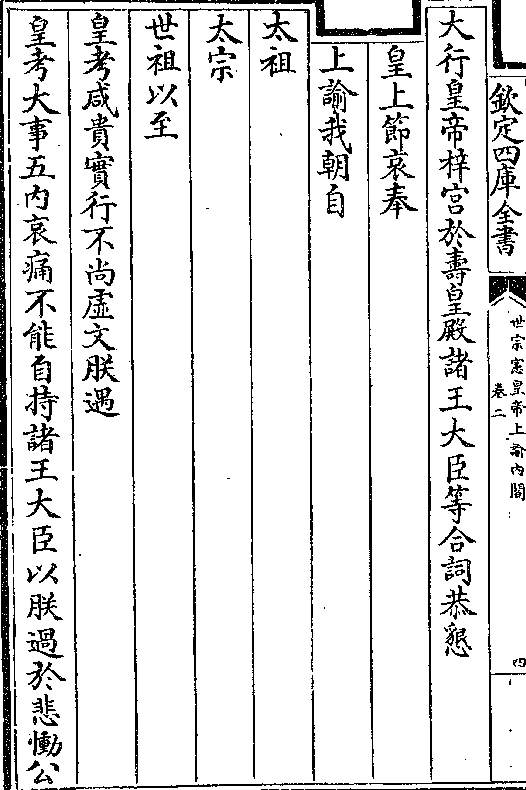 欽定四庫全書
世宗憲皇帝上諭內閣
卷二
四
大行皇帝梓宮於壽皇殿諸王大臣等合詞恭懇
皇上節哀奉
上諭我朝自
太祖
太宗
世祖以至
皇考咸貴實行不尚虛文朕遇
皇考大事五內哀痛不能自持諸王大臣以朕過於悲慟公